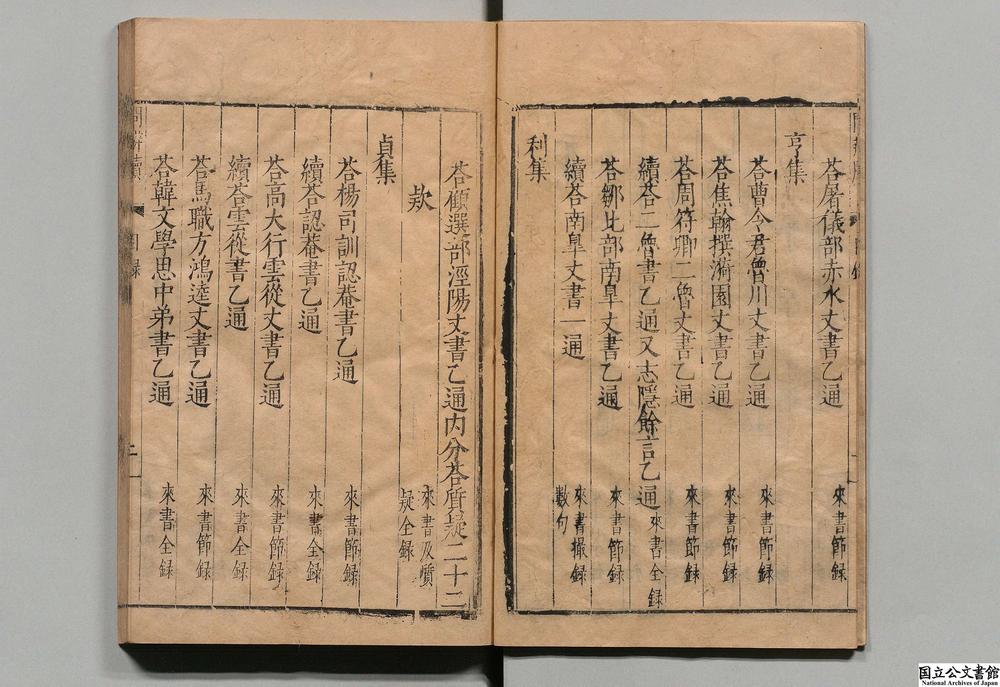 荅屠儀部赤水丈書乙通 來書節録
亨集
荅曹令君魯川丈書乙通 來書節録
荅焦翰撰漪園丈書乙通 來書節録
荅周符卿二魯丈書乙通 來書節録
續荅二魯書乙通又志隱餘言乙通 來書全録
荅鄒比部南臯丈書乙通 來書節録
續荅南臯丈書一通 來書撮録數句
利集
荅顧選部涇陽丈書乙通内分荅質疑二十二
欵 來書及質疑全録
貞集
荅楊司訓認菴書乙通 來書節録
續荅認菴書乙通 來書全録
荅高大行雲從丈書乙通 來書節録
續荅雲從書乙通 來書全録
荅馬職方鴻逵丈書乙通 來書節録
荅韓文學思中弟書乙通 來書全録
目録
二
国立公文書館
National Archives of Japan